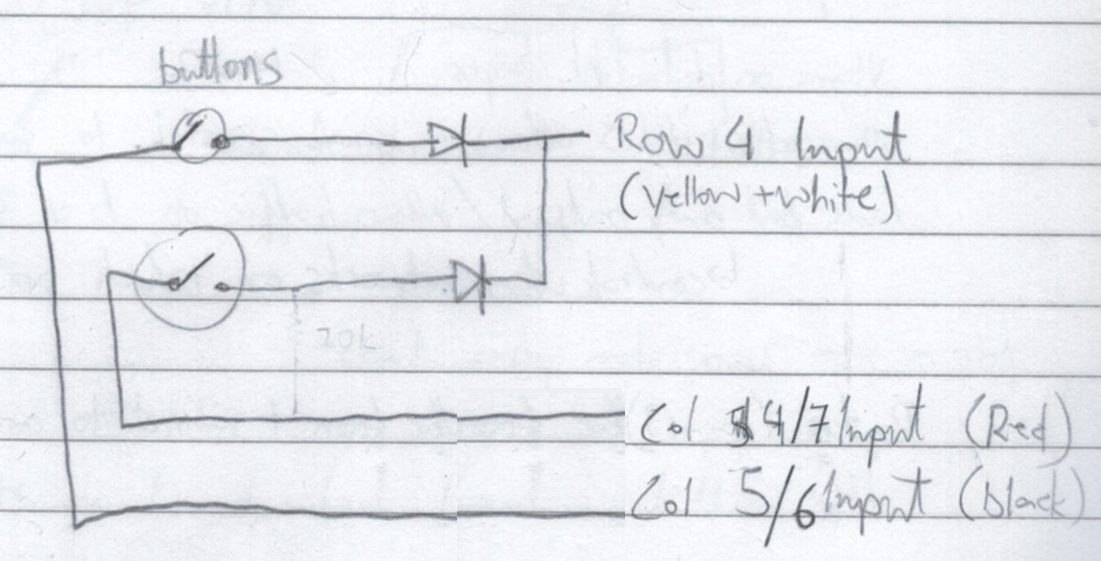 buttons
Row 4 Input
(yellow + white)
20k
Col 4/7 Input (Red)
Col 5/6 Input (black)